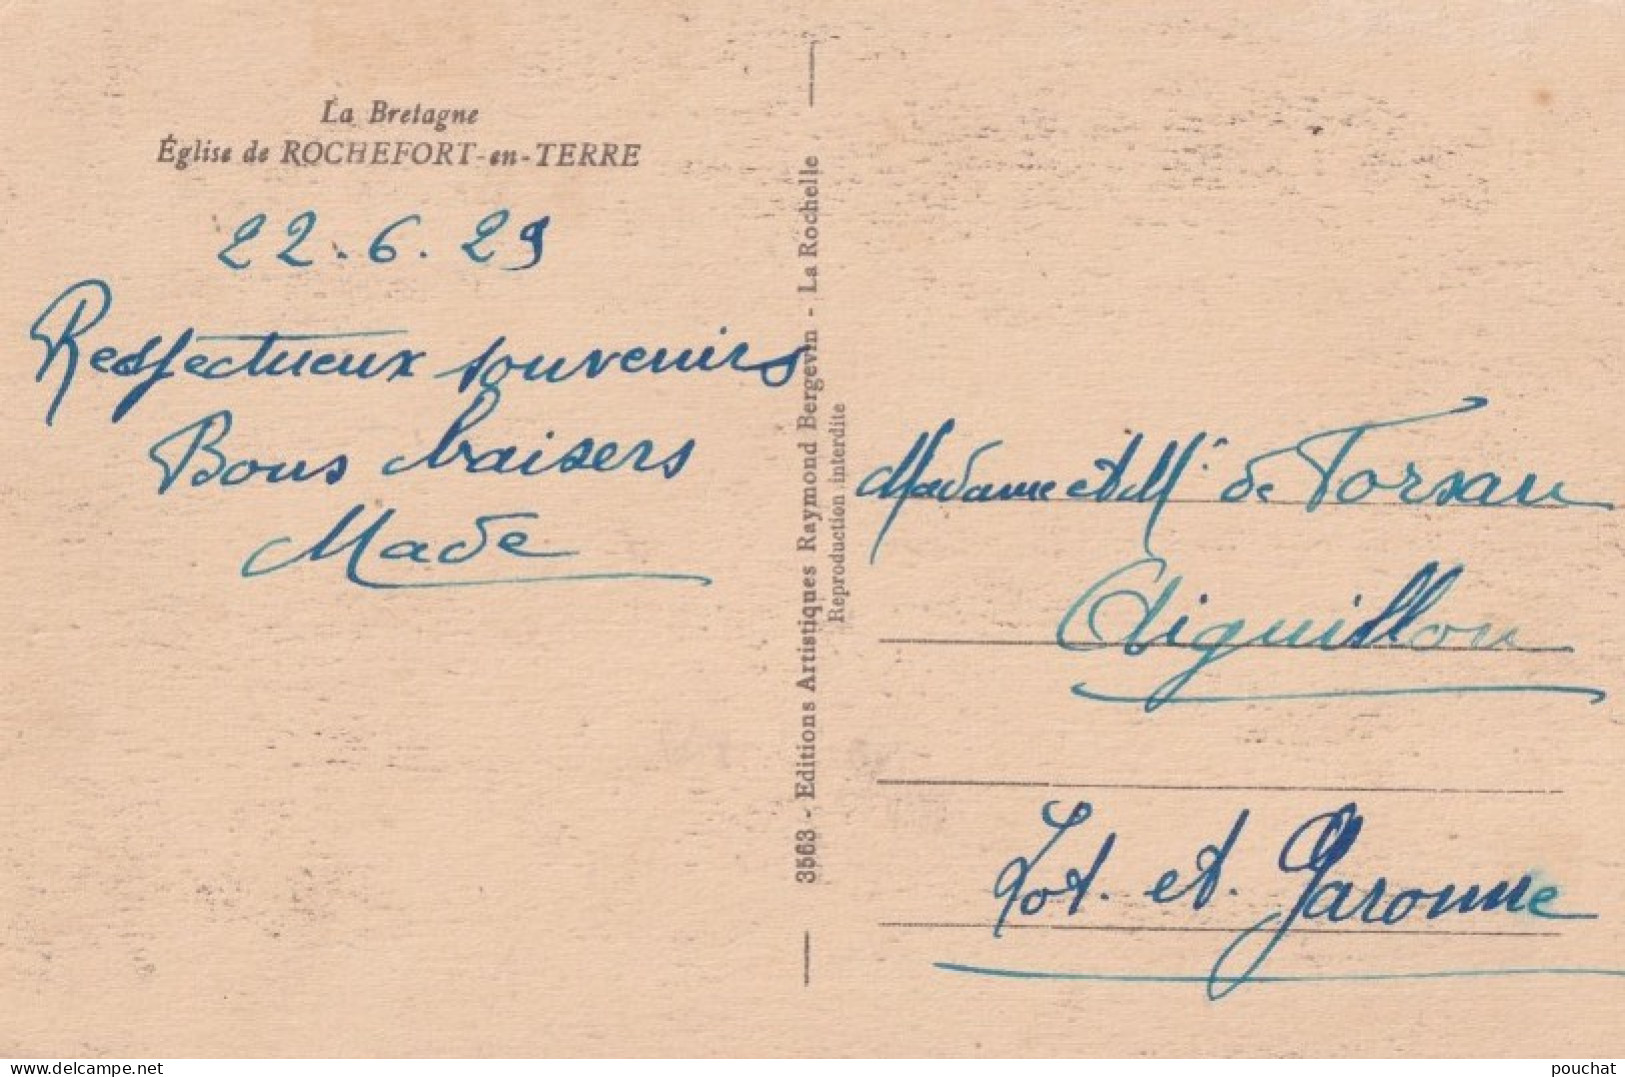 La Bretagne
Église de ROCHEFORT-en-TERRE
22.6.29
Respectueux souvenirs
Bons baisers
Made
3563 - Editions Artistiques Raymond Bergevin - La Rochelle
Reproduction interdite
Madame et Mr. de Torsan
Aiguillon
Lot. et. Garonne
www.delcampe.net
pouchat